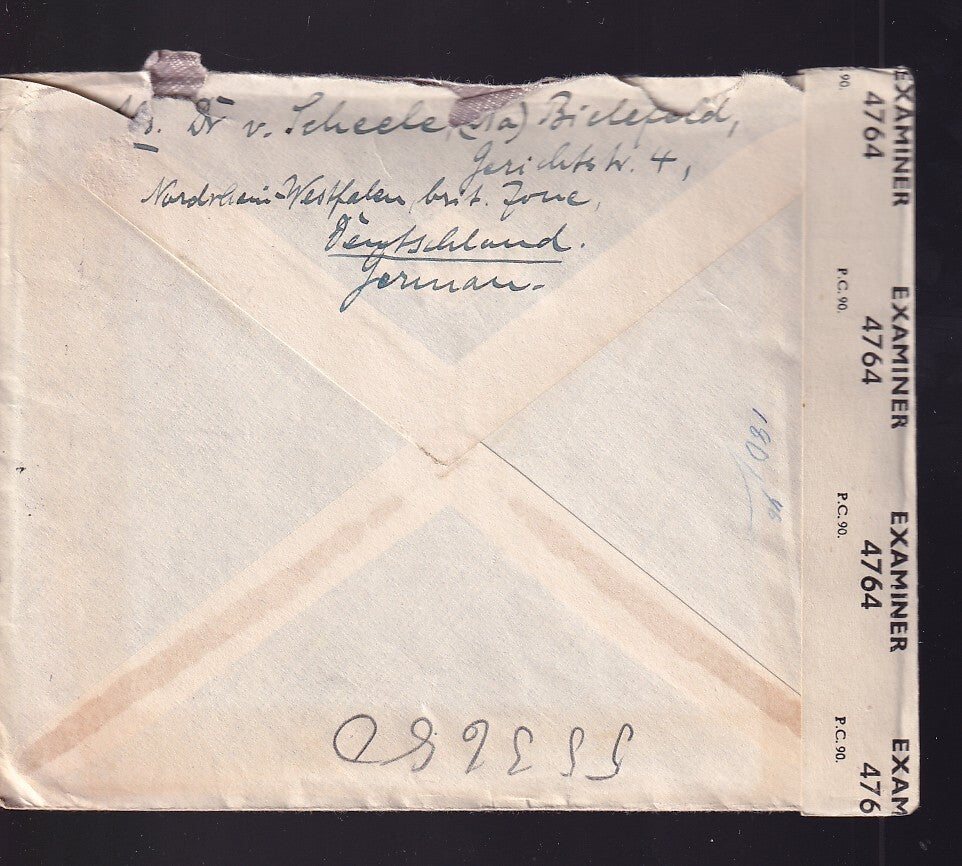 Dr v. Scheele, (21a) Bielefeld,
Gerichtstr. 4,
Nordrhein-Westfalen, brit. Zone,
Deutschland.
German
180/
P.C. 90.
EXAMINER 4764
P.C. 90.
EXAMINER 4764
P.C. 90.
EXAMINER 4764
P.C. 90.
EXAM 476
90.